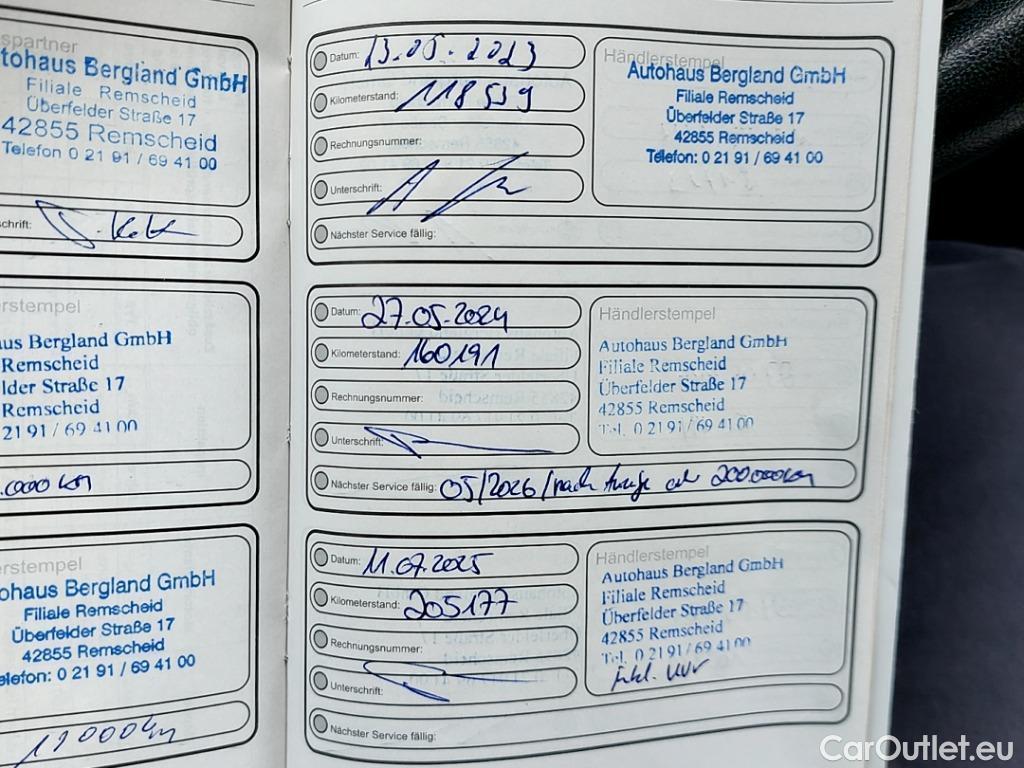 spartner
tohaus Bergland GmbH
Filiale Remscheid
Überfelder Straße 17
42855 Remscheid
Telefon 0 21 91 / 69 41 00
chrift:
rstempel
aus Bergland GmbH
Remscheid
lder Straße 17
Remscheid
21 91 / 69 41 00
.000 km
rstempel
ohaus Bergland GmbH
Filiale Remscheid
Überfelder Straße 17
42855 Remscheid
elefon: 0 21 91 / 69 41 00
Datum: 13.05.2023
Kilometerstand: 118539
Rechnungsnummer:
Unterschrift:
Nächster Service fällig:
Händlerstempel
Autohaus Bergland GmbH
Filiale Remscheid
Überfelder Straße 17
42855 Remscheid
Telefon: 0 21 91 / 69 41 00
Datum: 27.05.2024
Kilometerstand: 160191
Rechnungsnummer:
Unterschrift:
Nächster Service fällig: 05/2026/nach Anzeige oder 200.000km
Händlerstempel
Autohaus Bergland GmbH
Filiale Remscheid
Überfelder Straße 17
42855 Remscheid
Tel. 0 21 91 / 69 41 00
Datum: 11.07.2025
Kilometerstand: 205177
Rechnungsnummer:
Unterschrift:
Nächster Service fällig:
Händlerstempel
Autohaus Bergland GmbH
Filiale Remscheid
Überfelder Straße 17
42855 Remscheid
Tel. 0 21 91 / 69 41 00
inkl.
CarOutlet.eu